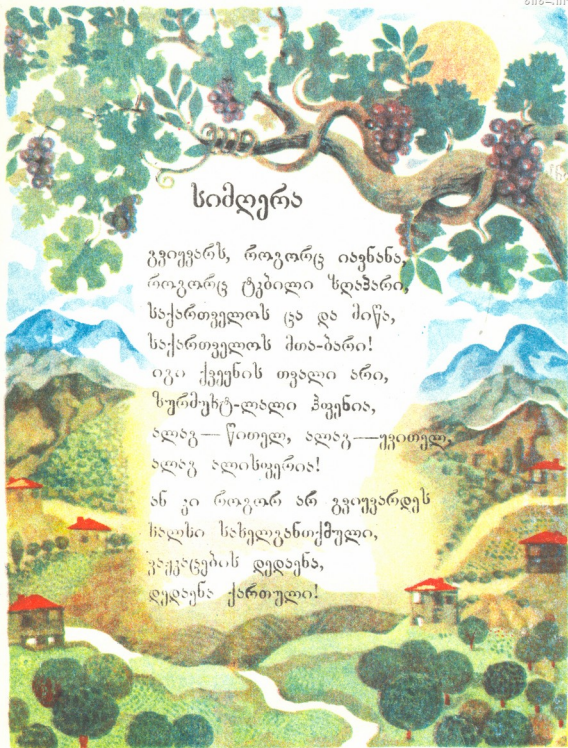 სიმღერა
გვიყვარს, როგორც იავნანა,
როგორც ტკბილი ზღაპარი,
საქართველოს ცა და მიწა,
საქართველოს მთა-ბარი!
იგი ქვეყნის თვალი არი,
ზურმუხტ-ლალი ჰფენია,
ალაგ — წითელ, ალაგ — ყვითელ,
ალაგ ალისფერია!
ან კი როგორ არ გვიყვარდეს
ხალხი სახელგანთქმული,
ვაჟკაცების დედაენა,
დედაენა ქართული!